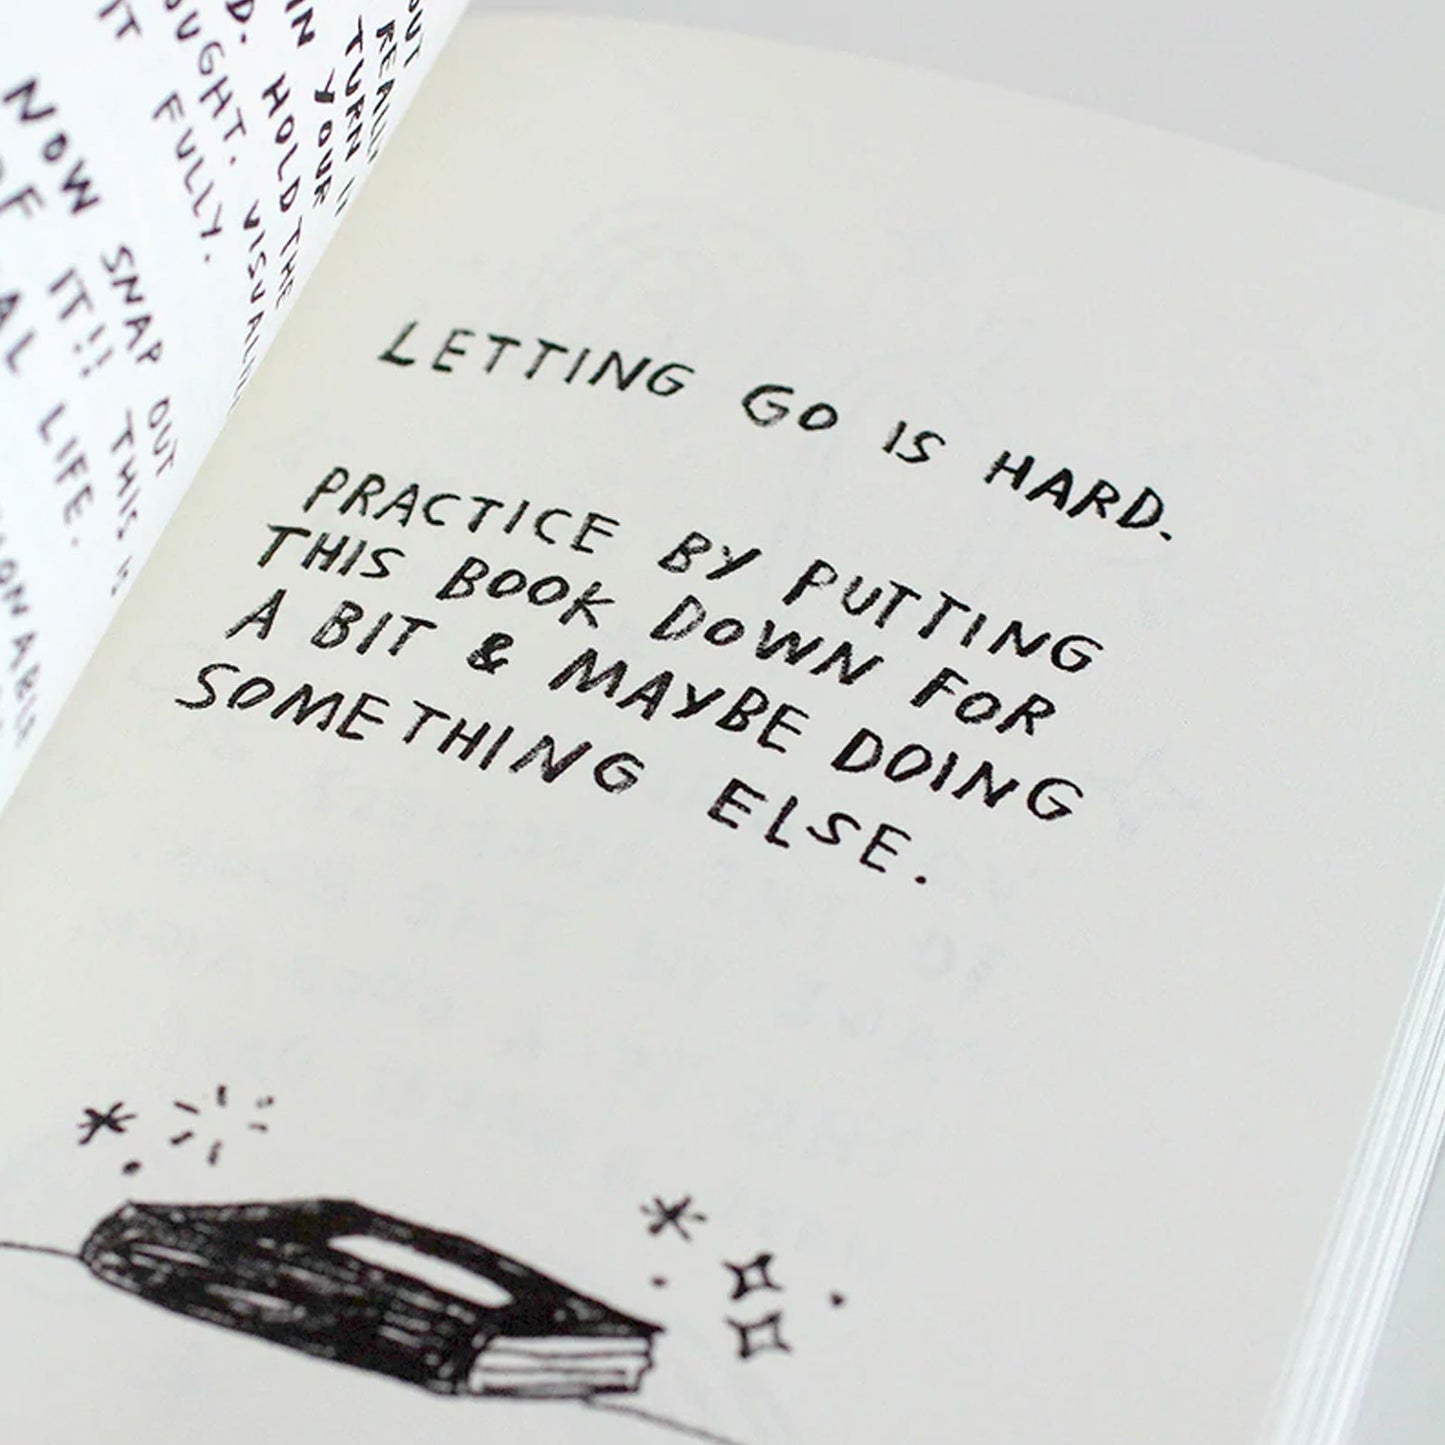 OUT
REALLY
TURN IT
IN YOUR
D. HOLD THE
OUGHT. VISUALI
IT FULLY.
NOW SNAP OUT
OF IT!! THIS I
AL LIFE.
LETTING GO IS HARD.
PRACTICE BY PUTTING
THIS BOOK DOWN FOR
A BIT & MAYBE DOING
SOMETHING ELSE.